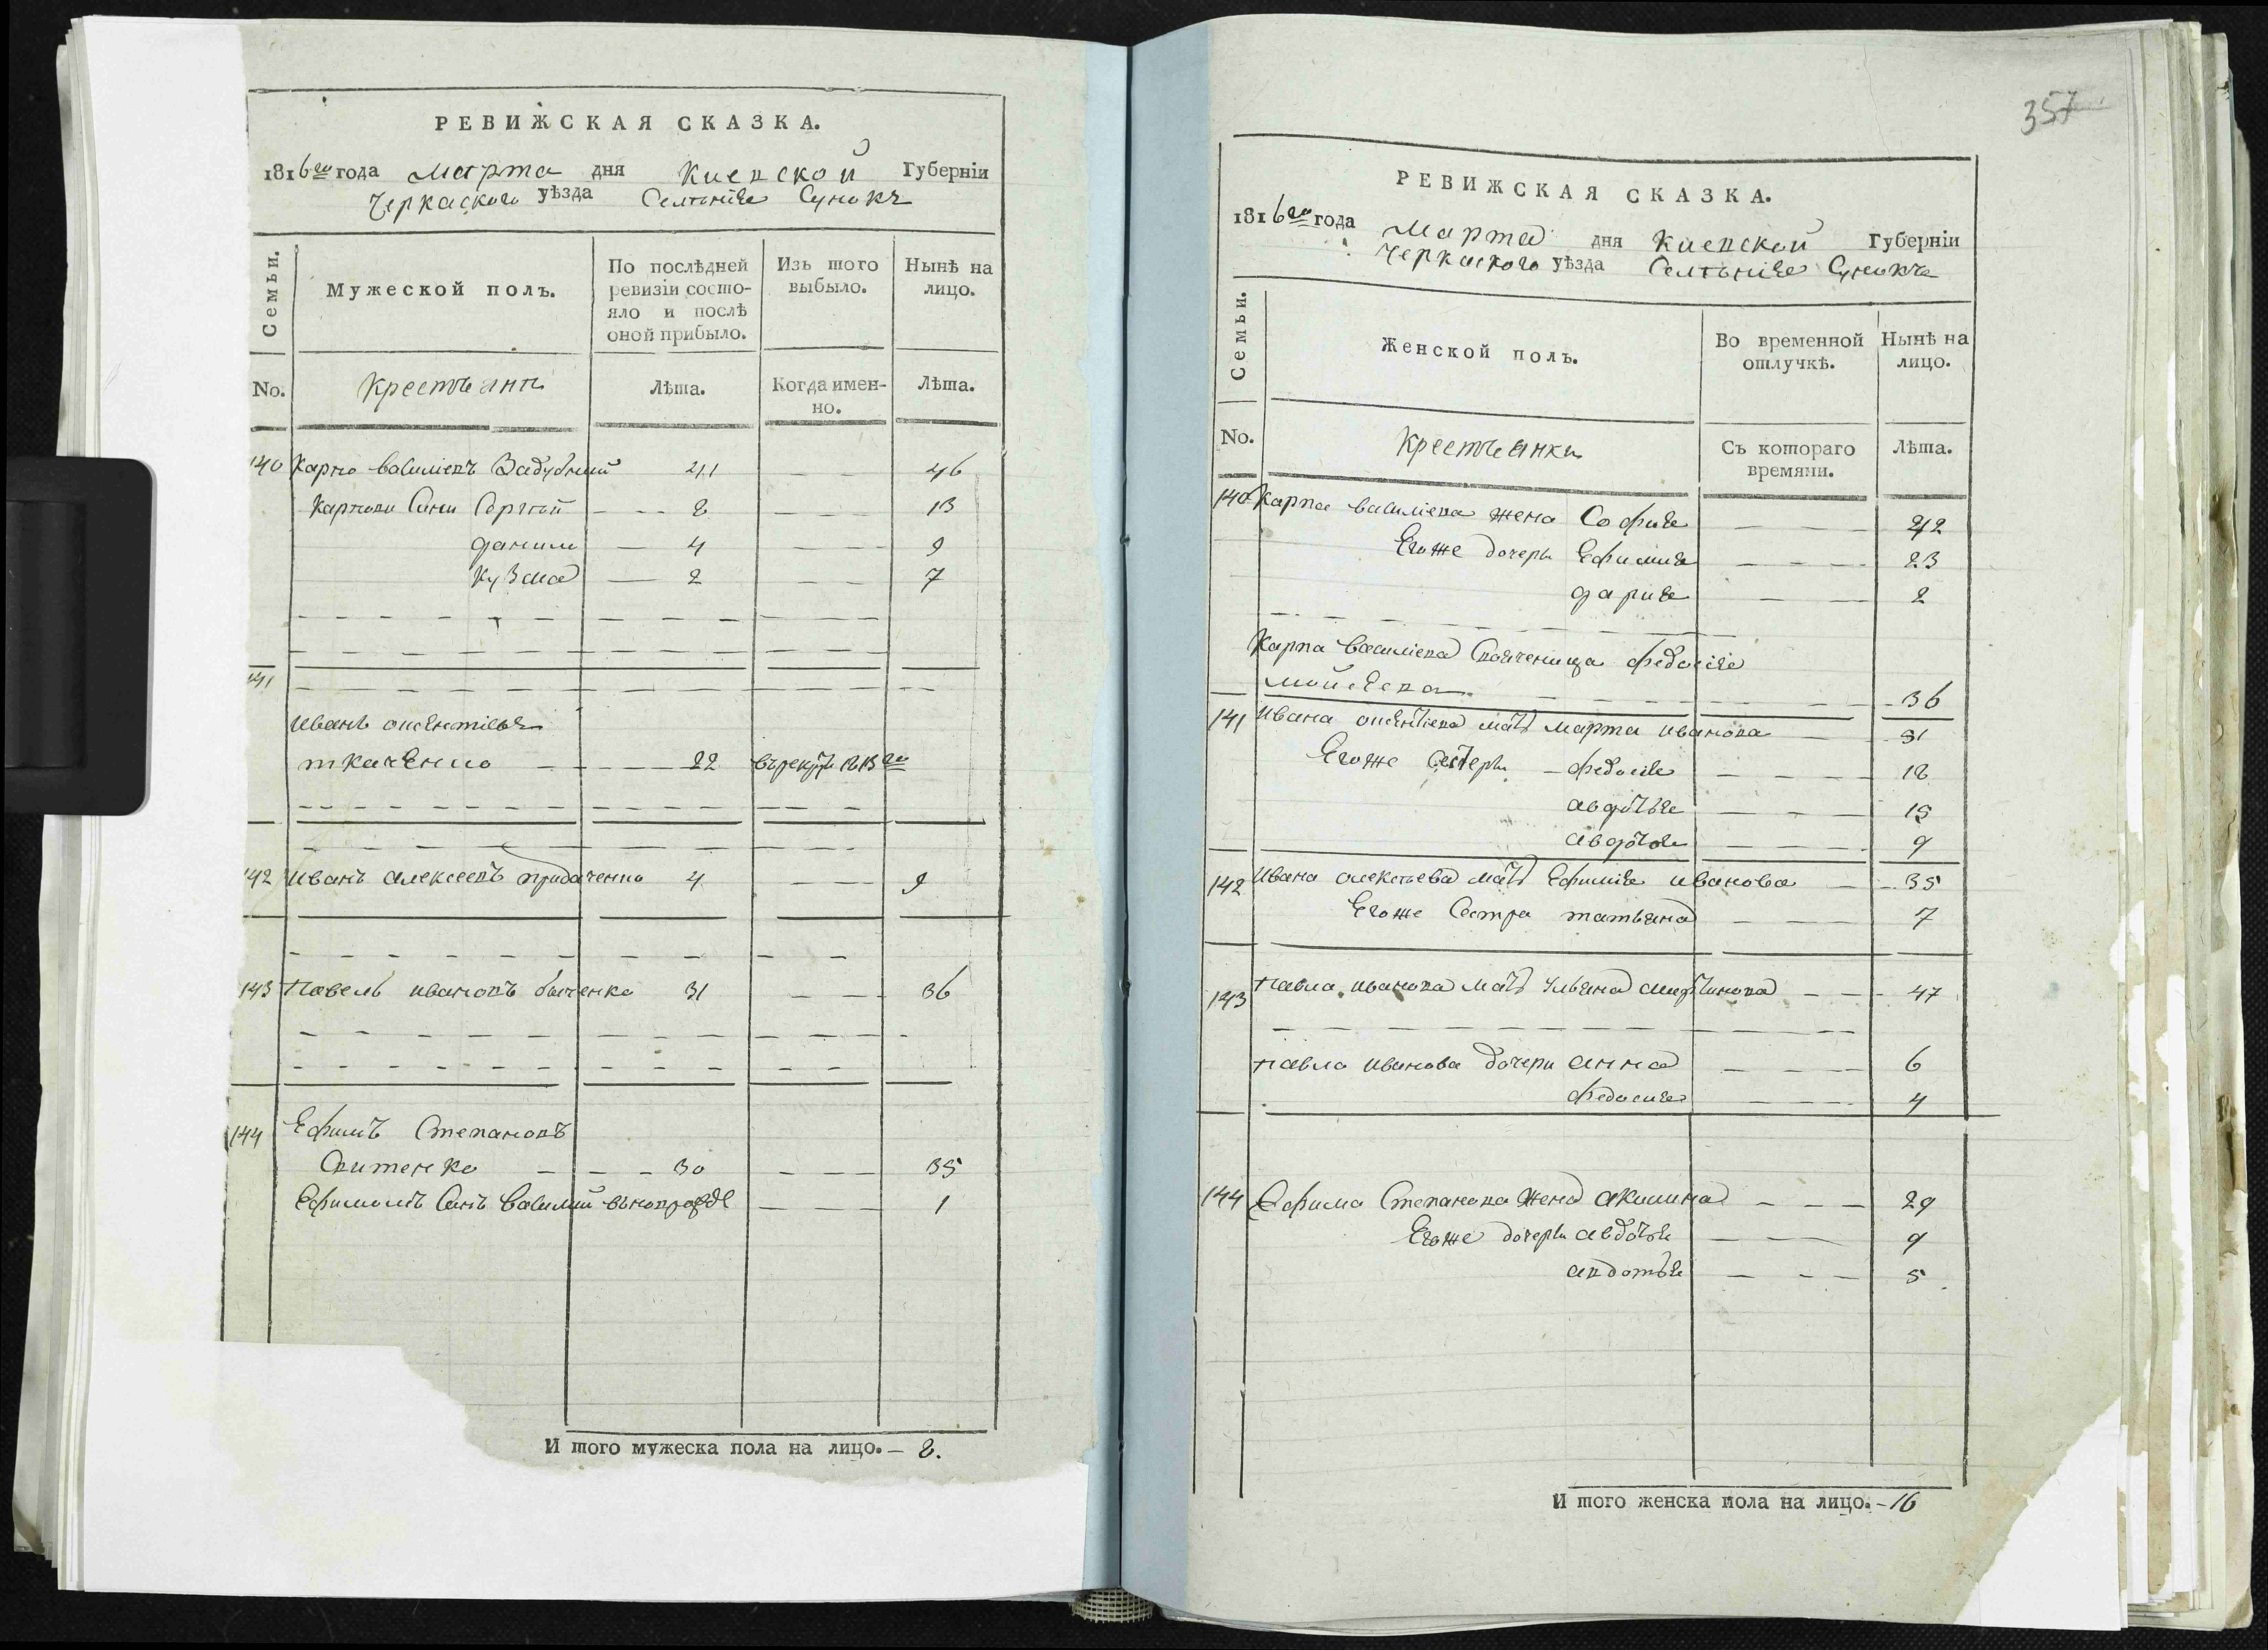 РЕВИЖСКАЯ СКАЗКА.
1816го года Марта дня Киевской Губерніи
Черкаского уѣзда Селенія Сунокъ
Семьи. Мужеской полъ. По послѣдней ревизіи состояло и послѣ оной прибыло. Изъ того выбыло. Нынѣ на лицо.
No. Крестьяни Лѣта. Когда именно. Лѣта.
140 Карпо Василиевъ 41 — — 46
Карпови Сини Сергей — — 8 — — 13
Данило — 4 — — 9
Кузма — 2 — — 7
141
Иванъ
ткаченко — — — 22 въ рекруты 1813го
142 Иванъ Алексеевъ 4 — — 9
143 Павелъ Ивановъ 31 — — 36
144 Ефимъ Степановъ
Свитенко — — — 30 — — — 35
Ефимовъ Синъ Василий — — — 1
И того мужеска пола на лицо. — 8.
357
РЕВИЖСКАЯ СКАЗКА.
1816го года Марта дня Киевской Губерніи
Черкаского уѣзда Селенія Сунокъ
Семьи. Женской полъ. Во временной отлучкѣ. Нынѣ на лицо.
No. Крестьянки Съ котораго времяни. Лѣта.
140 Карпа Василиева жена София — — — 42
Егоже дочери Ефимия — — — 23
Дария — — 2
Карпа Василиева Своячeница Федосия
Мойсеева — — — 36
141 Ивана мать Марта Иванова — 51
Егоже сестери — Федосия — — — 18
Авдотья — — — 15
Авдотья — — — 9
142 Ивана Алексеева мать Ефимия Иванова — — 35
Егоже Сестра татьяна — — 7
143 Павла Иванова мать Ульяна Мартинова — — — 47
Павла Иванова дочери Анна — — — 6
Федосия — — — 4
144 Ефима Степанова жена Акилина — — — 29
Егоже дочери Авдотья — — — 9
Авдотья — — — 5
И того женска пола на лицо. — 16